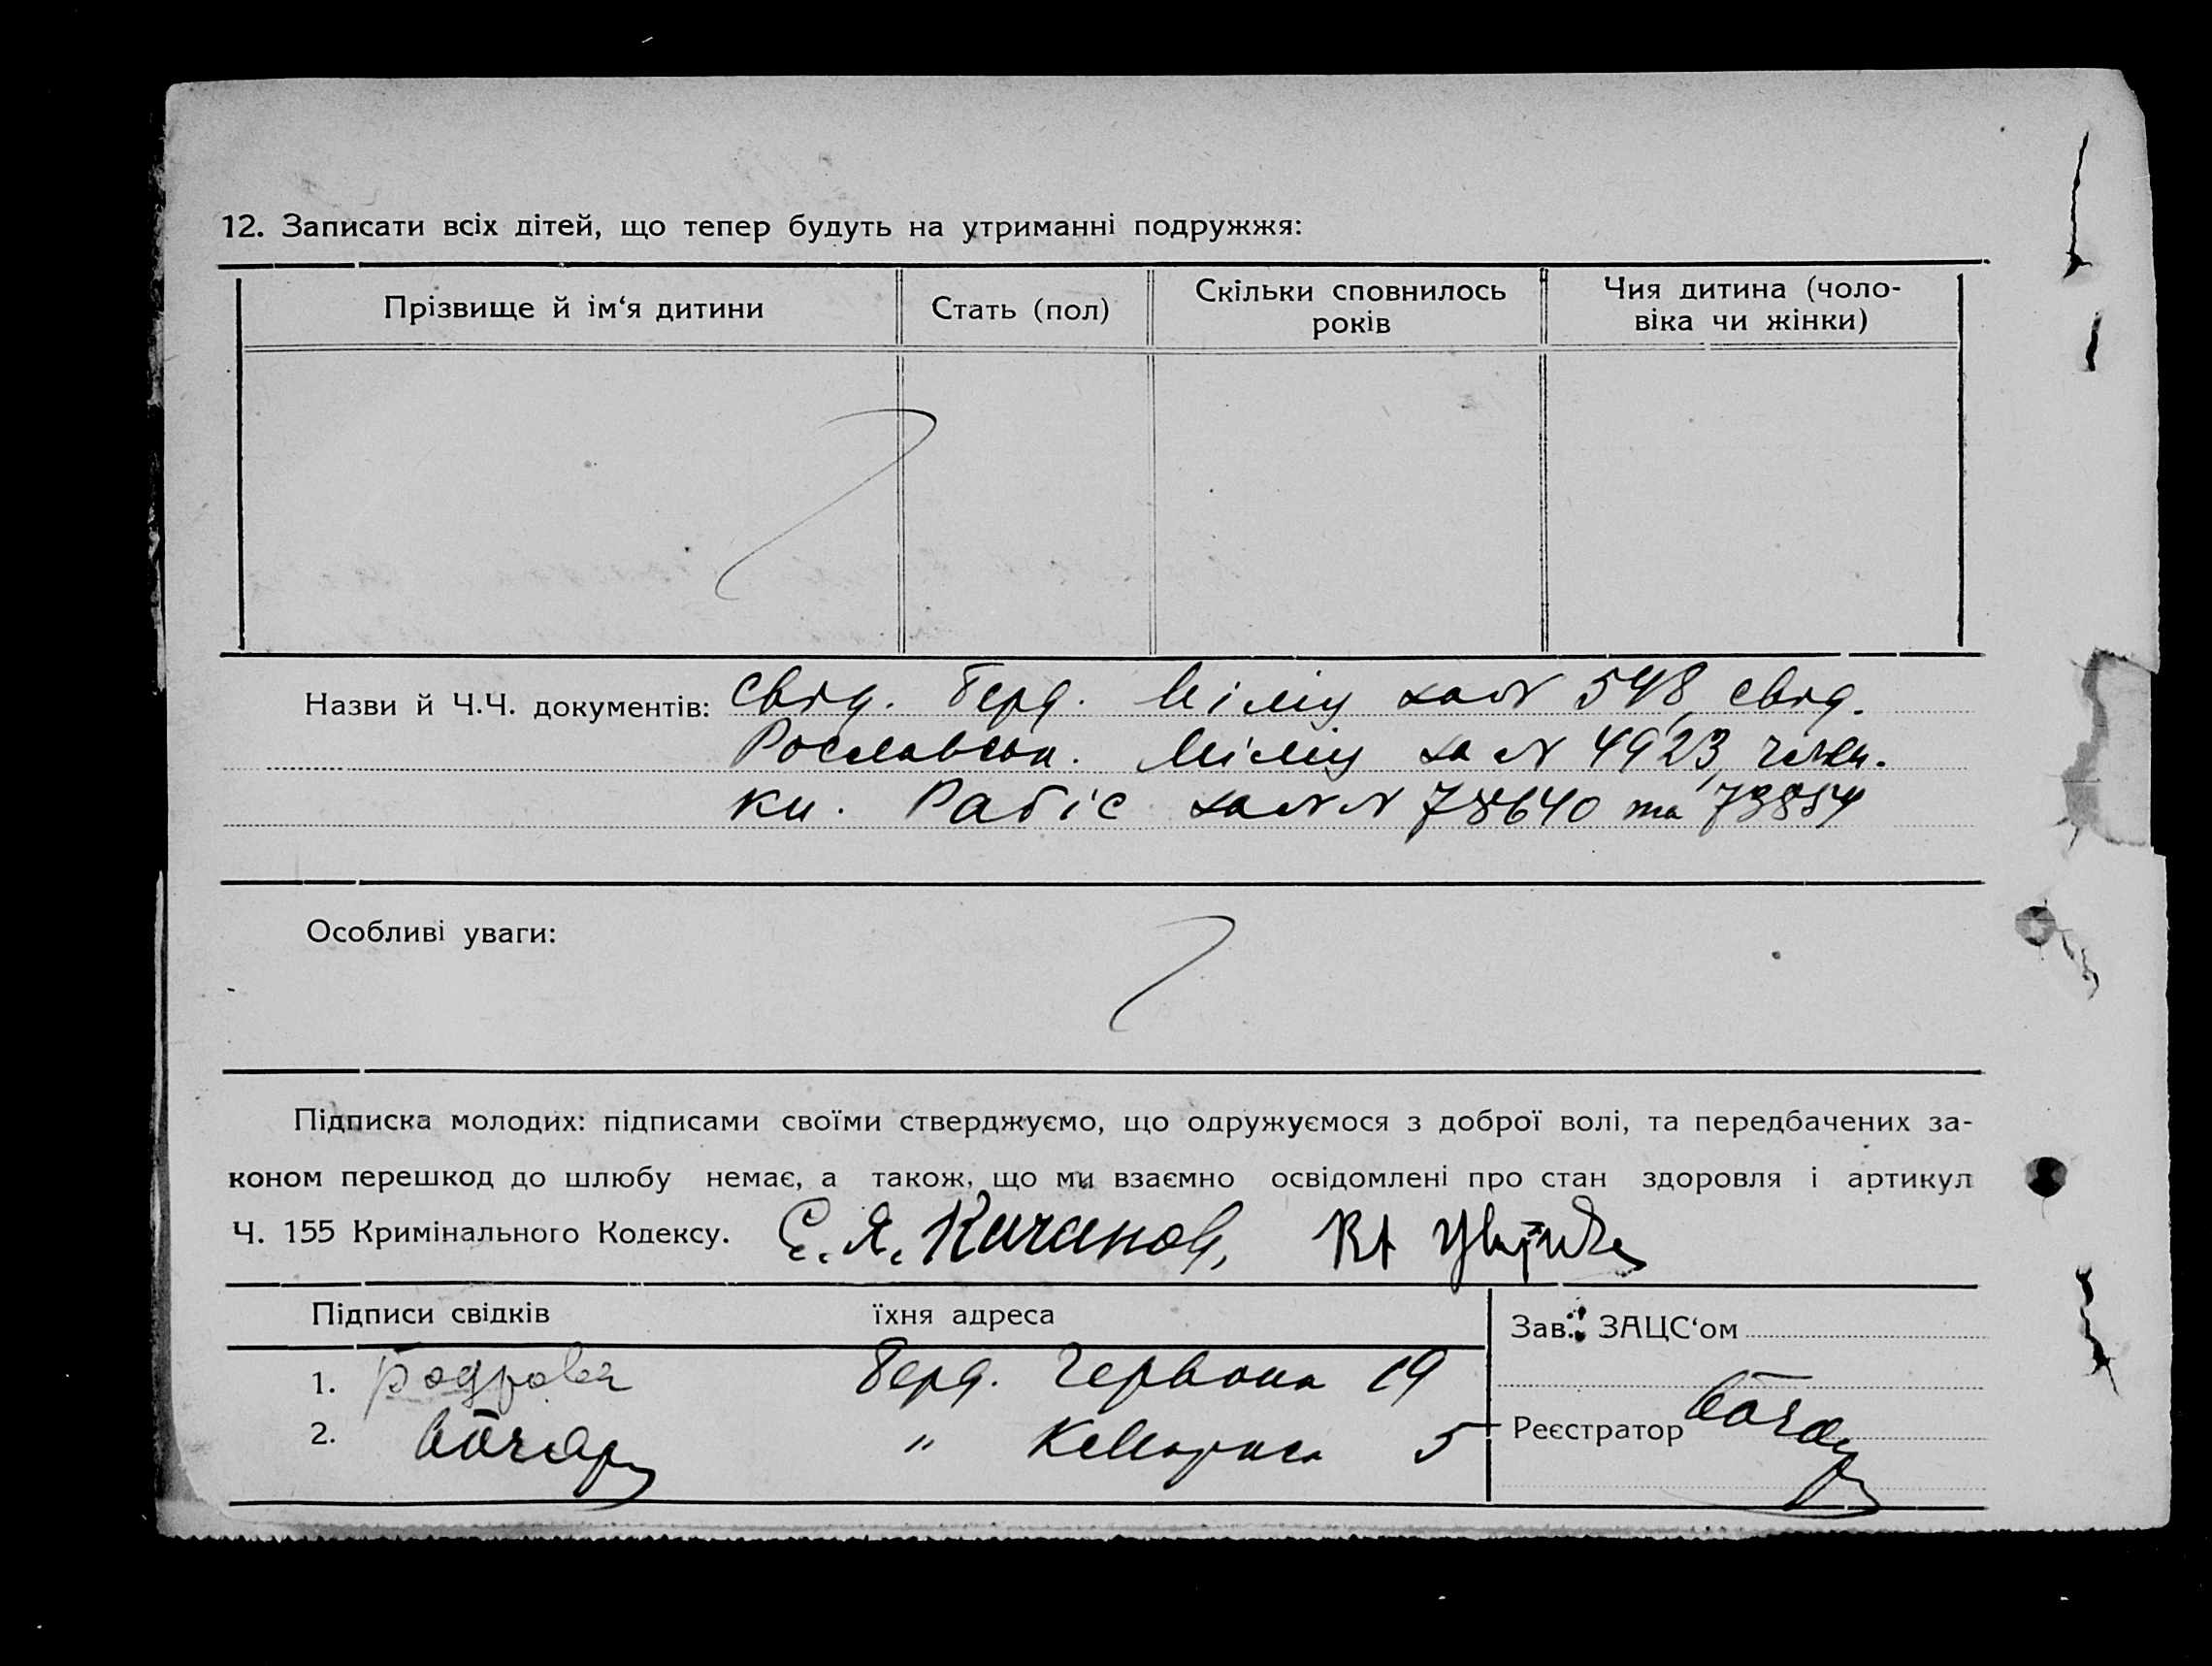 12. Записати всіх дітей, що тепер будуть на утриманні подружжя:
Прізвище й ім‘я дитини
Стать (пол)
Скільки сповнилось
років
Чия дитина (чоло-
віка чи жінки)
Назви й Ч.Ч. документів: свід. Берд. Міліц за N 548, свід.
Рославськ. Міліц за N 4923, член.
кн. Рабіс за NN 78640 та
Особливі уваги:
Підписка молодих: підписами своїми стверджуємо, що одружуємося з доброї волі, та передбачених за-
коном перешкод до шлюбу немає, а також, що ми взаємно освідомлені про стан здоровля і артикул
Ч. 155 Кримінального Кодексу. Є. Я. Качанов,
Підписи свідків
їхня адреса
1. Бодрова Берд. Червона 19
2. " К Маркса 5
Зав. ЗАЦС‘ом
Реєстратор